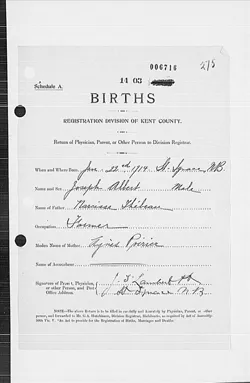 006716
275
Schedule A.
14 03
BIRTHS
REGISTRATION DIVISION OF KENT COUNTY.
Return of Physician, Parent, or Other Person to Division Registrar.
When and Where Born, Jan. 22nd 1914 St. Ignace N.B.
Name and Sex Joseph Albert Male
Name of Father Narcisse Thibeau
Occupation Farmer
Maiden Name of Mother Poirier
Name of Accoucheur
Signature of Parent, Physician, or other Person, and Post Office Address. Lambert
St. Ignace N.B.
NOTE—The above Return is to be filled in carefully and correctly by Physician, Parent, or other
person, and forwarded to Mr.